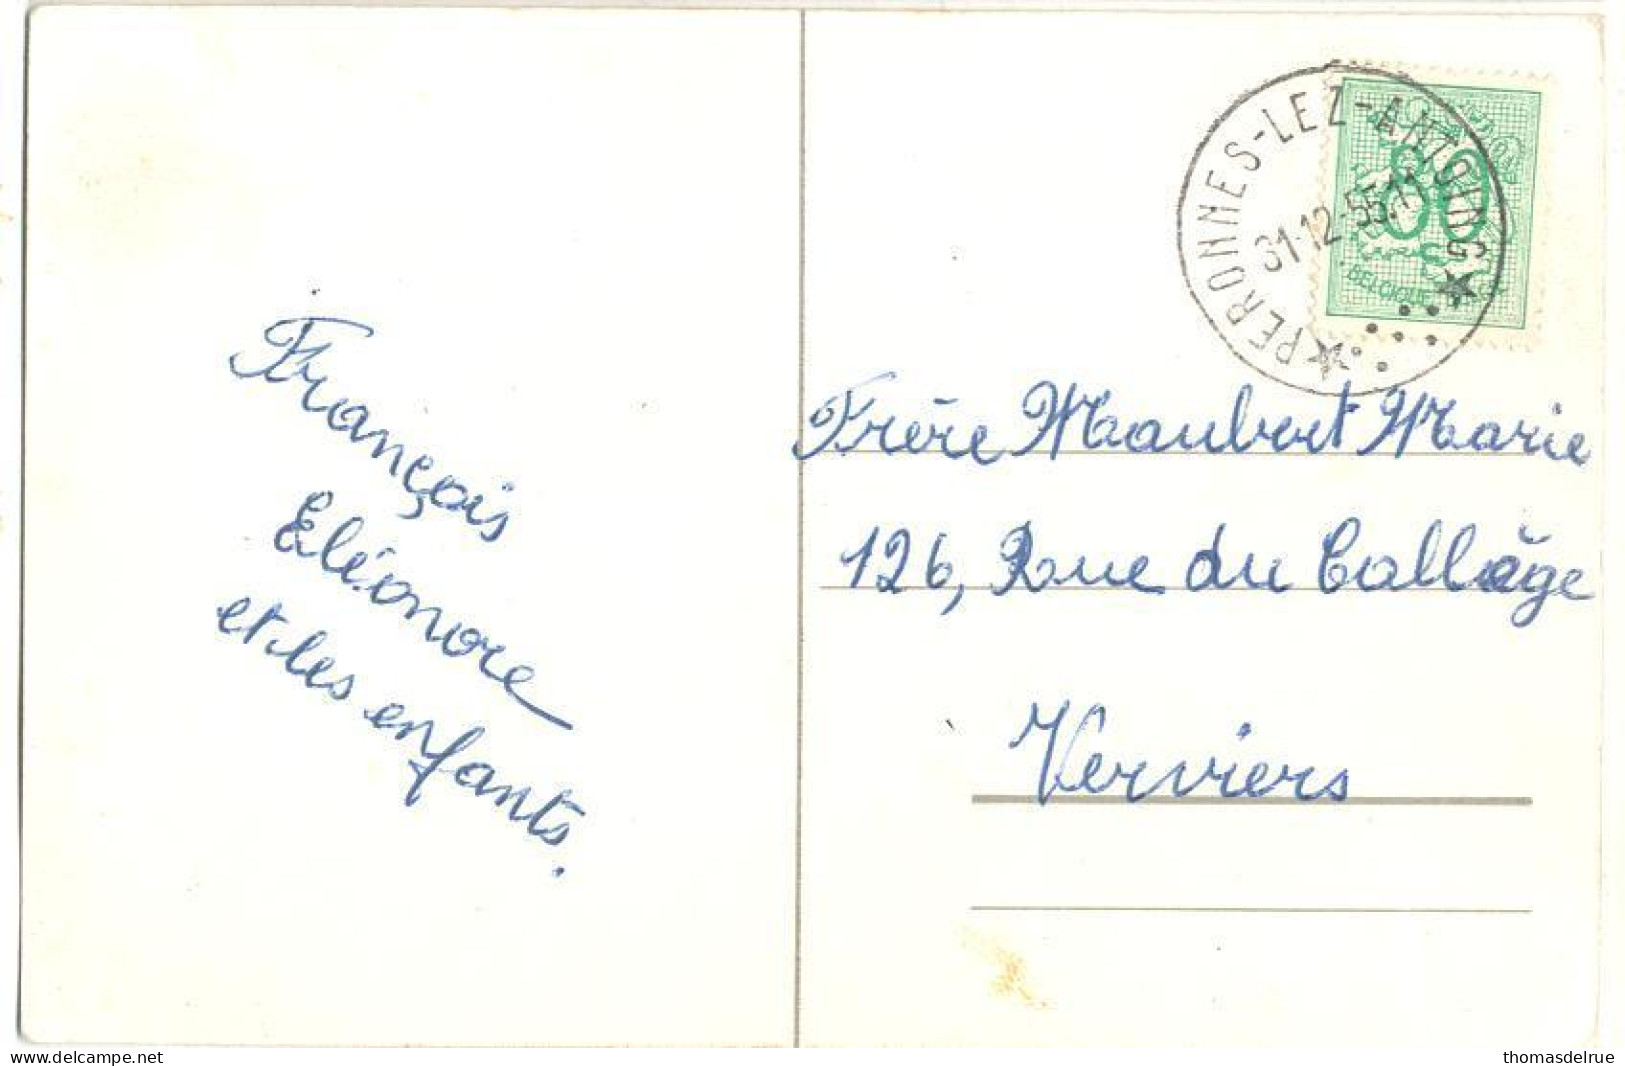 François
Eléonore
et les enfants.
PERONNES-LEZ-ANTOING
31-12-55.11
80
BELGIQUE
Frère Maubert Marie
126, Rue du Collège
Verviers
www.delcampe.net
thomasdelrue